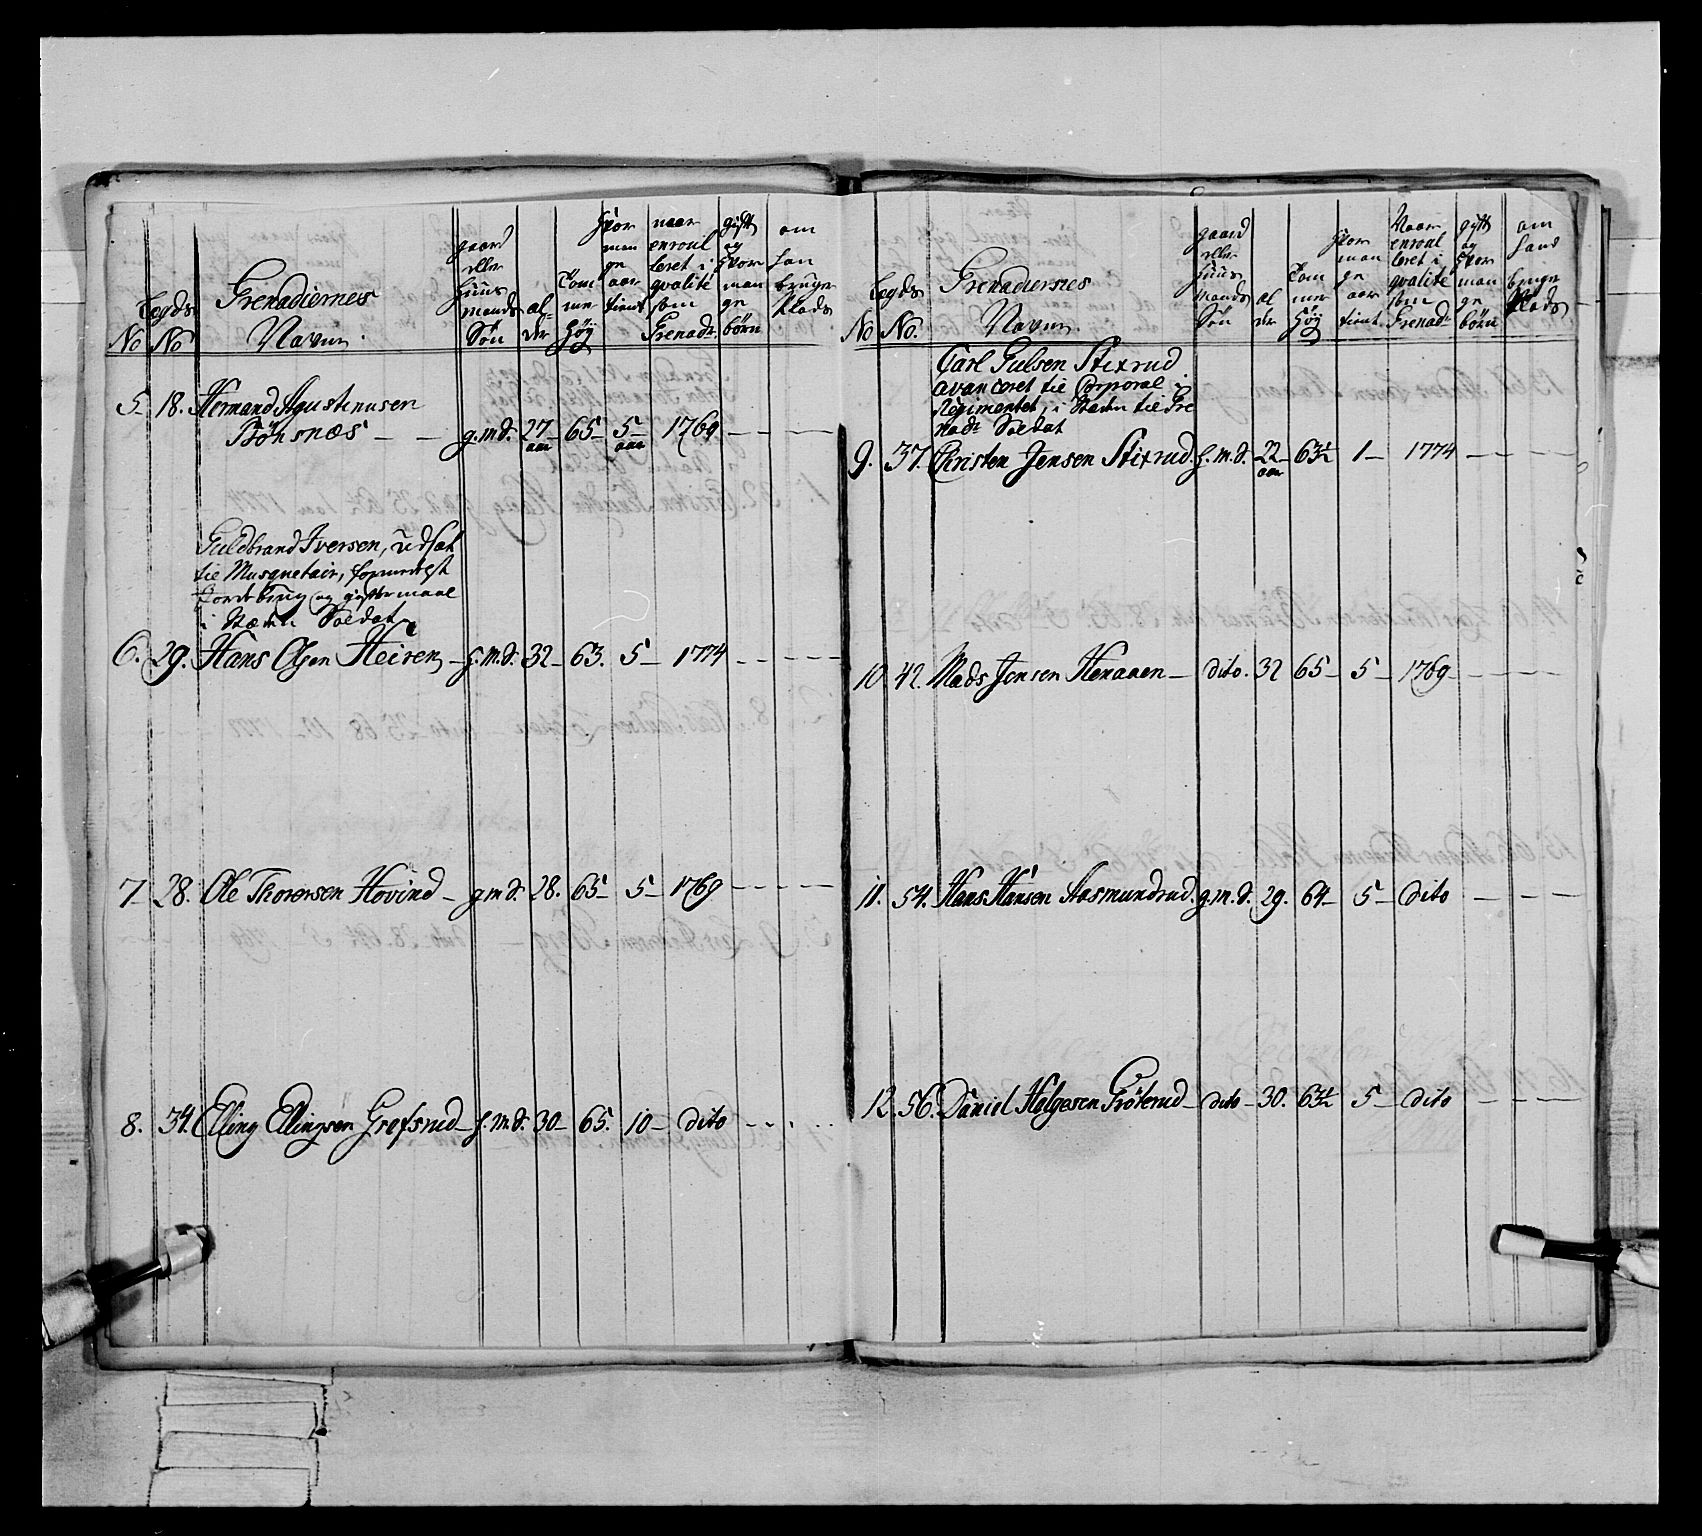 No
Lægds No
Grenadiernes Navne.
gaard eller Huus mands Søn
al- der
Tom me Høy
hvor man ge aar tient
naar enroul leret i qvalité som Grenadr
gift og hvor man ge børn
om han bruger Plads
5 18. Hermand Agustinusen
Bönsnæs – – g.m.S. 27 aar 65 5 aar 1769. – – –
Guldbrand Iversen, udsat
til Musquetair, formedelst
Jordebrug og giftermaal
i Stæden Soldat
6. 29. Hans Olsen Heiren – h.m.S. 32 – 63. 5 – 1774 – – – –
7 28. Ole Thorersen Hovind – g.m.S. 28. 65 – 5 – 1769 – – – –
8. 34. Elling Ellingsen Grefsrud – h.m.S. 30 – 65. 10 – dito – – – –
No
Lægds No.
Grenadiernes Navne.
gaard eller Huus mands Søn
al der
Tom mer Høy
hvor man ge aar tient
Naar enroul leret i qvalité som Grenadr
gift og hvor man ge børn
om hand bruger Plads
Carl Gulsen Stixrud
avanceret til Corporal i
Regimentet, i Stæden til Gre
nadr Soldat
9. 37. Christen Jensen Stixrud. h.m.S. 22 aar 63½ 1 – 1774 – – –
10. 42. Mads Jensen Henaaen – dito. 32 65 – 5 – 1769 – – – –
11. 54. Hans Hansen Aasmundrud. g.m.S. 29. 64 – 5 – dito – – –
12. 56. Daniel Helgesen Prösterud – dito – 30. 63½ 5 – dito – – –